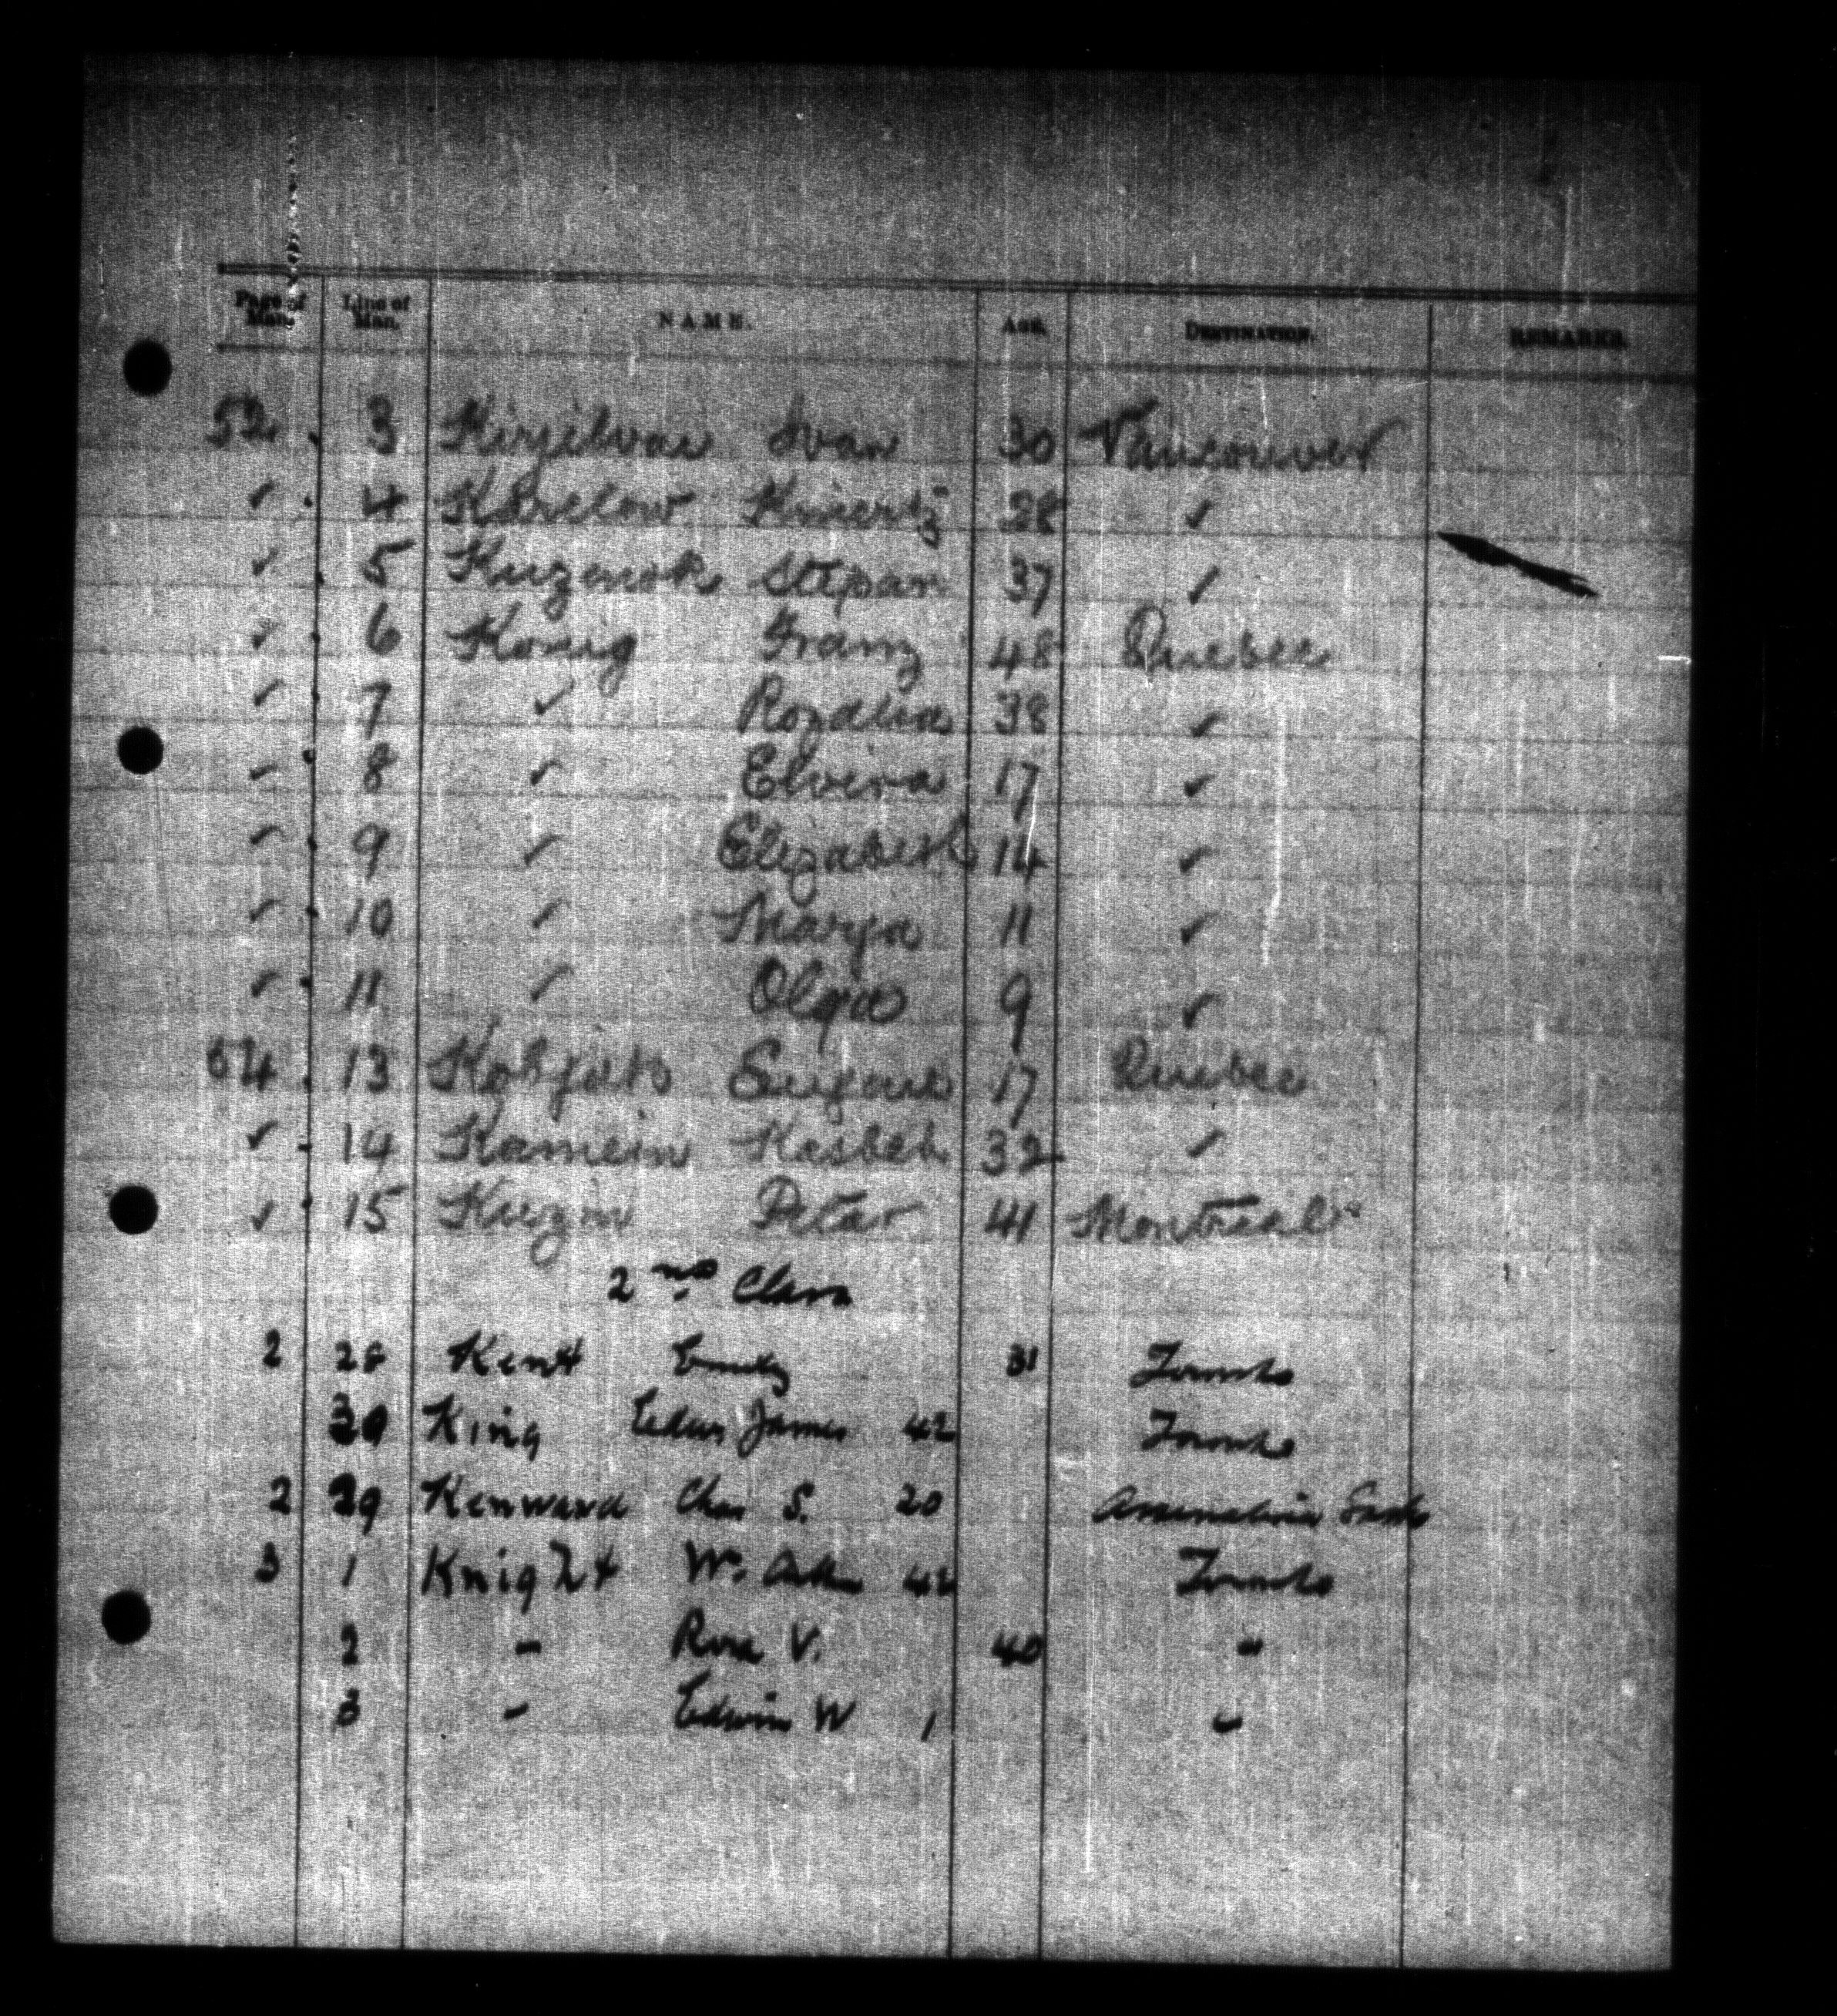 Page of Man. Line of Man. NAME. AGE. DESTINATION. REMARKS.
52 3 Ivan 30 Vancouver
✓ 4 Koselow 28 ✓
✓ 5 Stepan 37 ✓
✓ 6 Konig Franz 48 Quebec
✓ 7 ✓ Rozalia 38 ✓
✓ 8 ✓ Elvira 17 ✓
✓ 9 ✓ Elizabeth 14 ✓
✓ 10 ✓ Marya 11 ✓
✓ 11 ✓ Olga 9 ✓
54 13 17 Quebec
✓ 14 Kamein 32 ✓
✓ 15 Kuzin Petar 41 Montreal
2nd Class
2 28 Kent Emily 31 Toronto
30 King James 42 Toronto
2 29 Kenward Chas S. 20 Sask
3 1 Knight Wm 42 Toronto
2 - Rose V. 40 "
3 - Edwin W 1 "